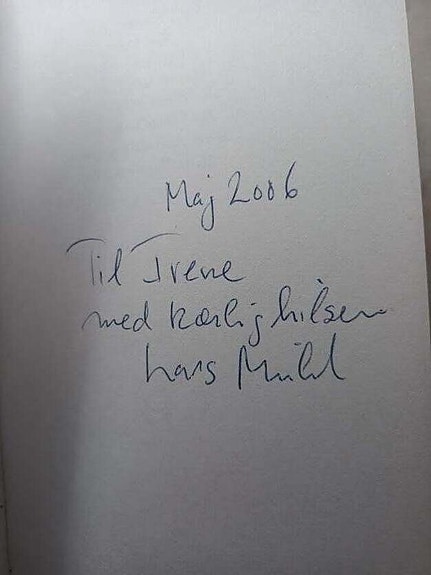 Maj 2006
Til Irene
med kærlig hilsen
Lars Muhl